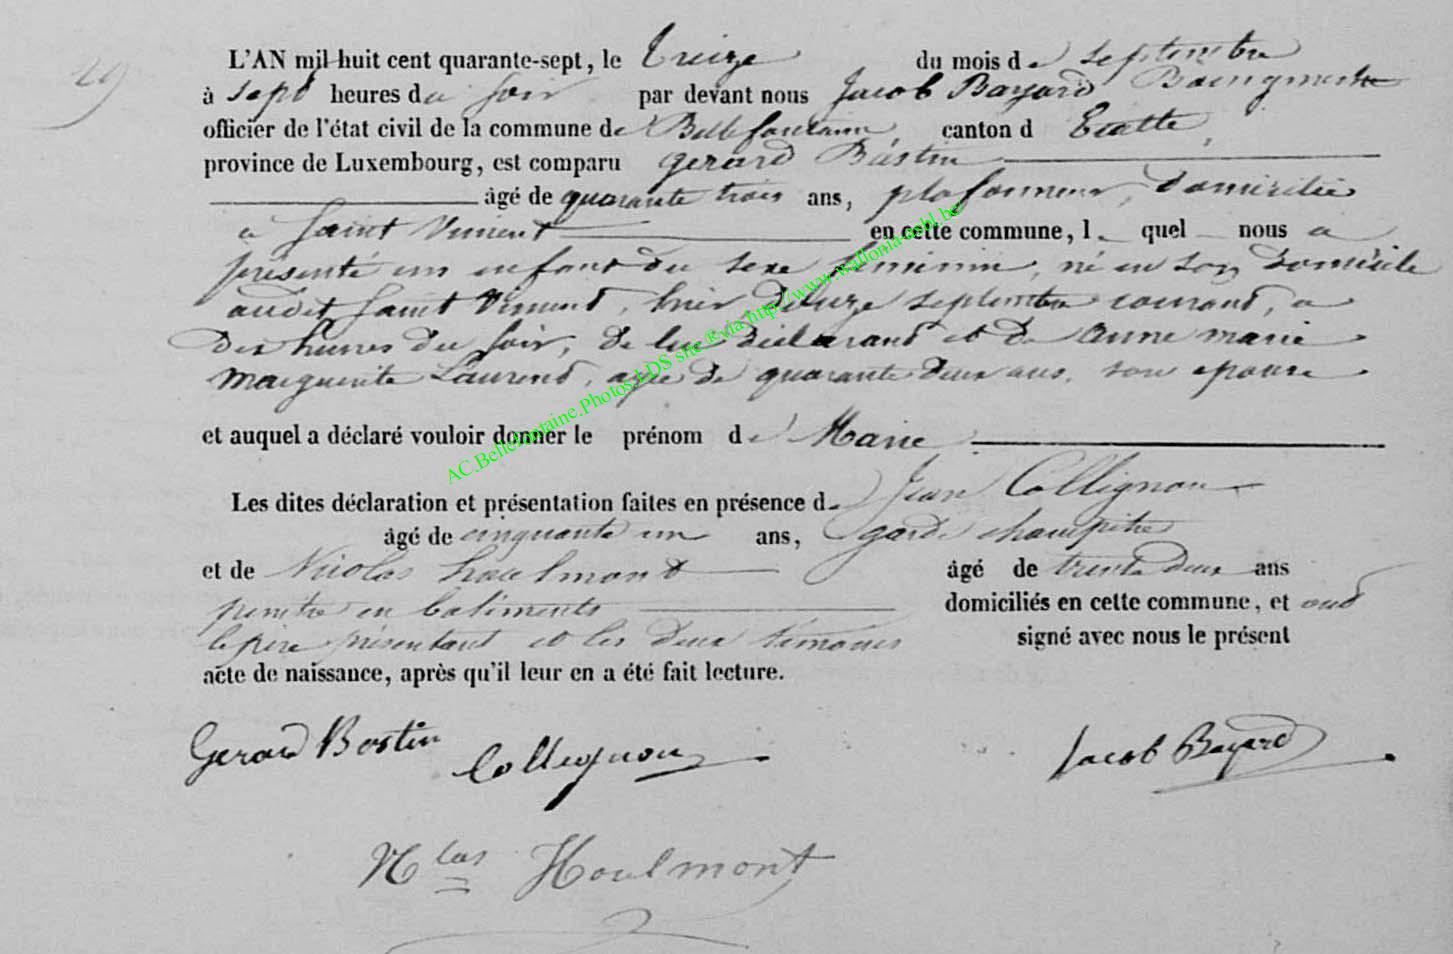 29
L'AN mil huit cent quarante-sept, le treize du mois de septembre
à sept heures du soir par devant nous Jacob Bayard Bourgmestre
officier de l'état civil de la commune de Bellefontaine, canton d'Etalle,
province de Luxembourg, est comparu Gerard Bastin
âgé de quarante trois ans, plafonneur, domicilié
à Saint Vincent en cette commune, lequel nous a
présenté un enfant du sexe féminin, né en son domicile
audit Saint Vincent, hier douze septembre courant, a
dix heures du soir, de lui déclarant et de anne marie
marguerite Laurent, agée de quarante deux ans, son epouse
et auquel a déclaré vouloir donner le prénom de Marie
Les dites déclaration et présentation faites en présence de Jean Collignon
âgé de cinquante un ans, garde champêtre
et de Nicolas houlmont âgé de trente deux ans
peintre en batiments domiciliés en cette commune, et ont
le père présentant et les deux témoins signé avec nous le présent
acte de naissance, après qu'il leur en a été fait lecture.
Gerard Bastin Collignon Jacob Bayard
Nlas Houlmont
AC.Bellefontaine.Photos LDS site ®via http://www.wallonia-asbl.be/